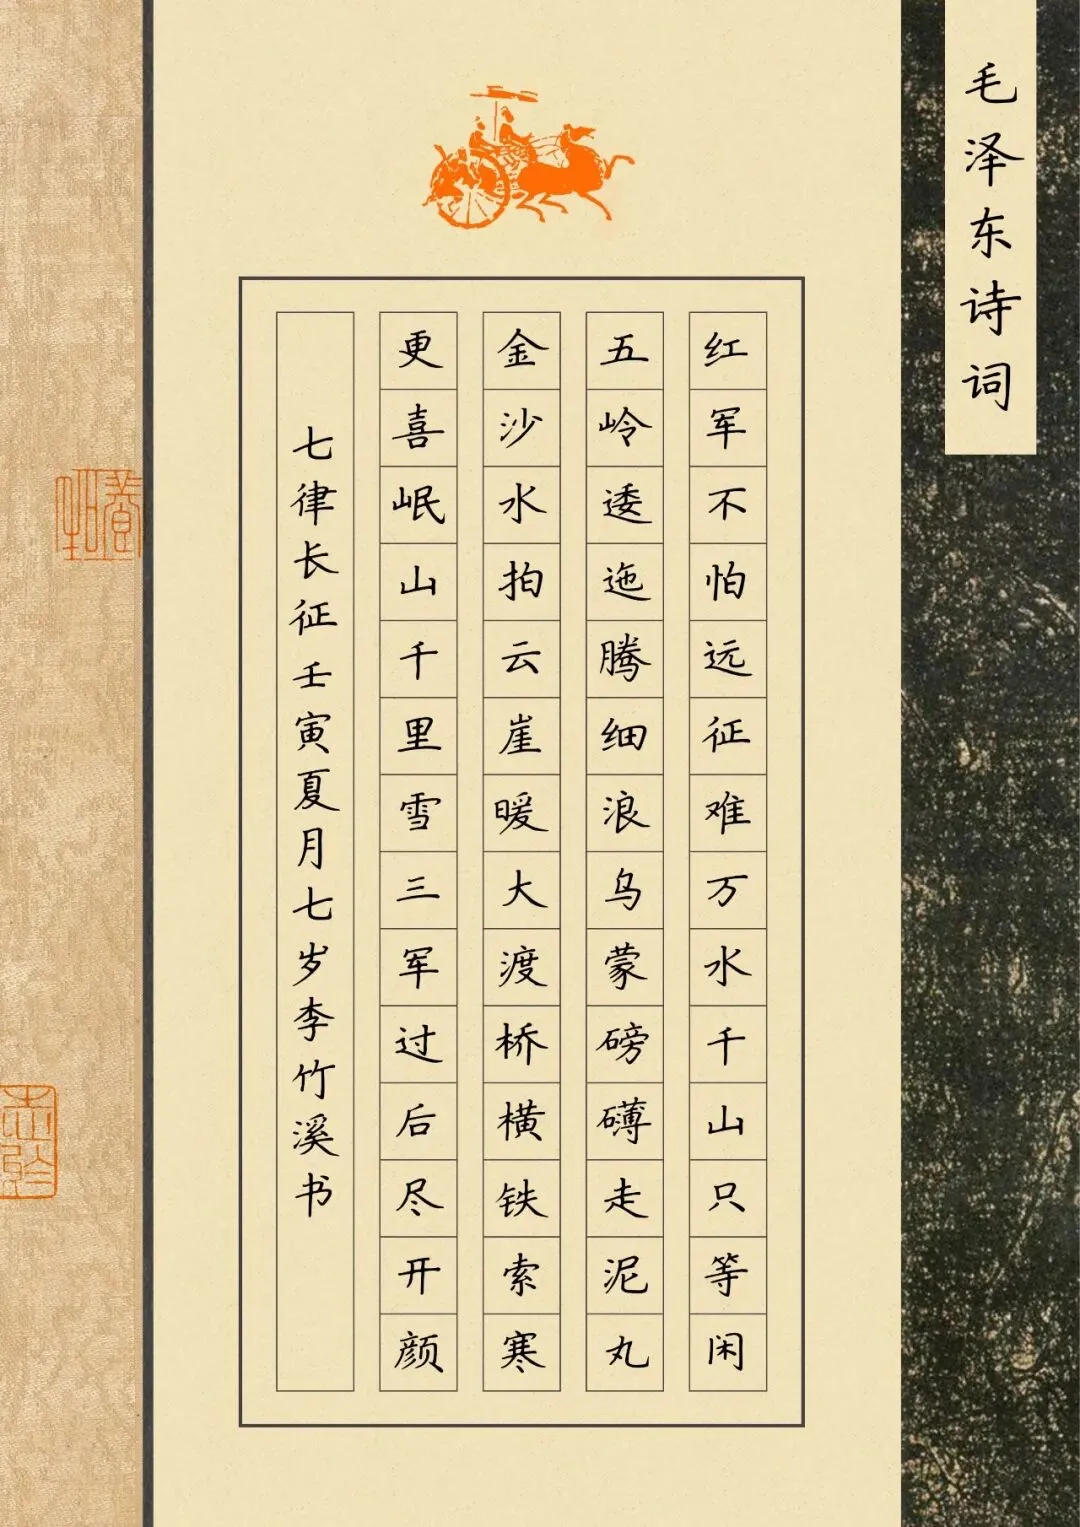 毛泽东诗词
红军不怕远征难万水千山只等闲
五岭逶迤腾细浪乌蒙磅礴走泥丸
金沙水拍云崖暖大渡桥横铁索寒
更喜岷山千里雪三军过后尽开颜
七律长征壬寅夏月七岁李竹溪书